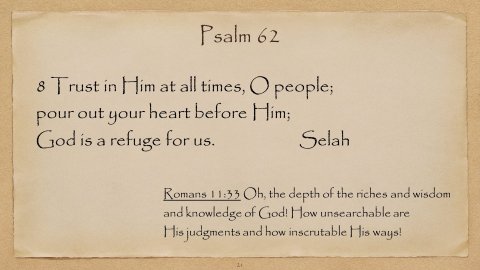 Psalm 62
8 Trust in Him at all times, O people;
pour out your heart before Him;
God is a refuge for us. Selah
Romans 11:33 Oh, the depth of the riches and wisdom
and knowledge of God! How unsearchable are
His judgments and how inscrutable His ways!
21